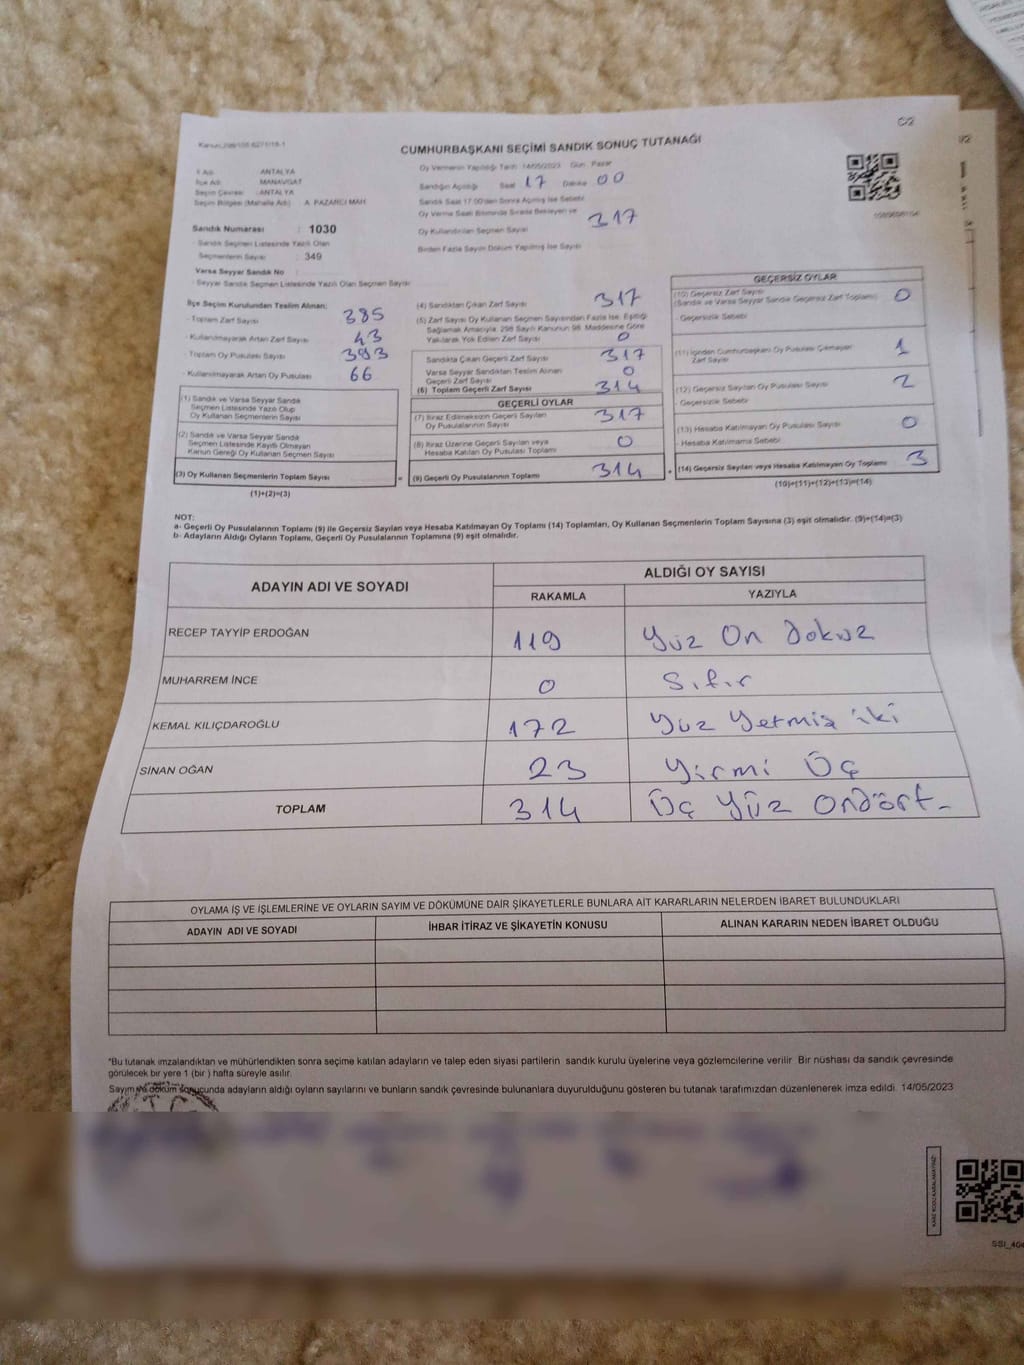 C/2
CUMHURBAŞKANI SEÇİMİ SANDIK SONUÇ TUTANAĞI
İl Adı : ANTALYA
İlçe Adı : MANAVGAT
Seçim Çevresi : ANTALYA
Seçim Bölgesi (Mahalle Adı) : A. PAZARCI MAH.
Sandık Numarası : 1030
Sandık Seçmen Listesinde Yazılı Olan
Seçmenlerin Sayısı : 349
Varsa Seyyar Sandık No
Seyyar Sandık Seçmen Listesinde Yazılı Olan Seçmen Sayısı
Oy Vermenin Yapıldığı Tarih 14/05/2023 Gün Pazar
Sandığın Açıldığı Saat 17 Dakika 00
Sandık Saat 17:00'den Sonra Açılmış İse Sebebi
Oy Verme Saati Bitiminde Sırada Bekleyen ve
Oy Kullandırılan Seçmen Sayısı 317
Birden Fazla Sayım Döküm Yapılmış İse Sayısı
İlçe Seçim Kurulundan Teslim Alınan;
- Toplam Zarf Sayısı 385
- Kullanılmayarak Artan Zarf Sayısı 43
- Toplam Oy Pusulası Sayısı 393
- Kullanılmayarak Artan Oy Pusulası 66
(1) Sandık ve Varsa Seyyar Sandık
Seçmen Listesinde Yazılı Olup
Oy Kullanan Seçmenlerin Sayısı
(2) Sandık ve Varsa Seyyar Sandık
Seçmen Listesinde Kayıtlı Olmayan
Kanun Gereği Oy Kullanan Seçmen Sayısı
(3) Oy Kullanan Seçmenlerin Toplam Sayısı =
(1)+(2)=(3)
(4) Sandıktan Çıkan Zarf Sayısı 317
(5) Zarf Sayısı Oy Kullanan Seçmen Sayısından Fazla İse, Eşitliği
Sağlamak Amacıyla, 298 Sayılı Kanunun 98. Maddesine Göre
Yakılarak Yok Edilen Zarf Sayısı 0
Sandıkta Çıkan Geçerli Zarf Sayısı 317
Varsa Seyyar Sandıktan Teslim Alınan
Geçerli Zarf Sayısı 0
(6) Toplam Geçerli Zarf Sayısı 314
GEÇERLİ OYLAR
(7) İtiraz Edilmeksizin Geçerli Sayılan
Oy Pusulalarının Sayısı 317
(8) İtiraz Üzerine Geçerli Sayılan veya
Hesaba Katılan Oy Pusulası Toplamı 0
(9) Geçerli Oy Pusulalarının Toplamı 314 +
GEÇERSİZ OYLAR
(10) Geçersiz Zarf Sayısı
(Sandık ve Varsa Seyyar Sandık Geçersiz Zarf Toplamı) 0
- Geçersizlik Sebebi
(11) İçinden Cumhurbaşkanı Oy Pusulası Çıkmayan
Zarf Sayısı 1
(12) Geçersiz Sayılan Oy Pusulası Sayısı 2
- Geçersizlik Sebebi
(13) Hesaba Katılmayan Oy Pusulası Sayısı 0
- Hesaba Katılmama Sebebi
(14) Geçersiz Sayılan veya Hesaba Katılmayan Oy Toplamı 3
(10)+(11)+(12)+(13)=(14)
NOT:
a- Geçerli Oy Pusulalarının Toplamı (9) ile Geçersiz Sayılan veya Hesaba Katılmayan Oy Toplamı (14) Toplamları, Oy Kullanan Seçmenlerin Toplam Sayısına (3) eşit olmalıdır. (9)+(14)=(3)
b- Adayların Aldığı Oyların Toplamı, Geçerli Oy Pusulalarının Toplamına (9) eşit olmalıdır.
ADAYIN ADI VE SOYADI ALDIĞI OY SAYISI
RAKAMLA YAZIYLA
RECEP TAYYİP ERDOĞAN 119 Yüz On Dokuz
MUHARREM İNCE 0 Sıfır
KEMAL KILIÇDAROĞLU 172 Yüz Yetmiş iki
SİNAN OĞAN 23 Yirmi Üç
TOPLAM 314 Üç Yüz Ondört-
OYLAMA İŞ VE İŞLEMLERİNE VE OYLARIN SAYIM VE DÖKÜMÜNE DAİR ŞİKAYETLERLE BUNLARA AİT KARARLARIN NELERDEN İBARET BULUNDUKLARI
ADAYIN ADI VE SOYADI İHBAR İTİRAZ VE ŞİKAYETİN KONUSU ALINAN KARARIN NEDEN İBARET OLDUĞU
*Bu tutanak imzalandıktan ve mühürlendikten sonra seçime katılan adayların ve talep eden siyasi partilerin sandık kurulu üyelerine veya gözlemcilerine verilir Bir nüshası da sandık çevresinde
görülecek bir yere 1 (bir) hafta süreyle asılır.
Sayım ve döküm sonucunda adayların aldığı oyların sayılarını ve bunların sandık çevresinde bulunanlara duyurulduğunu gösteren bu tutanak tarafımızdan düzenlenerek imza edildi. 14/05/2023
T.C.